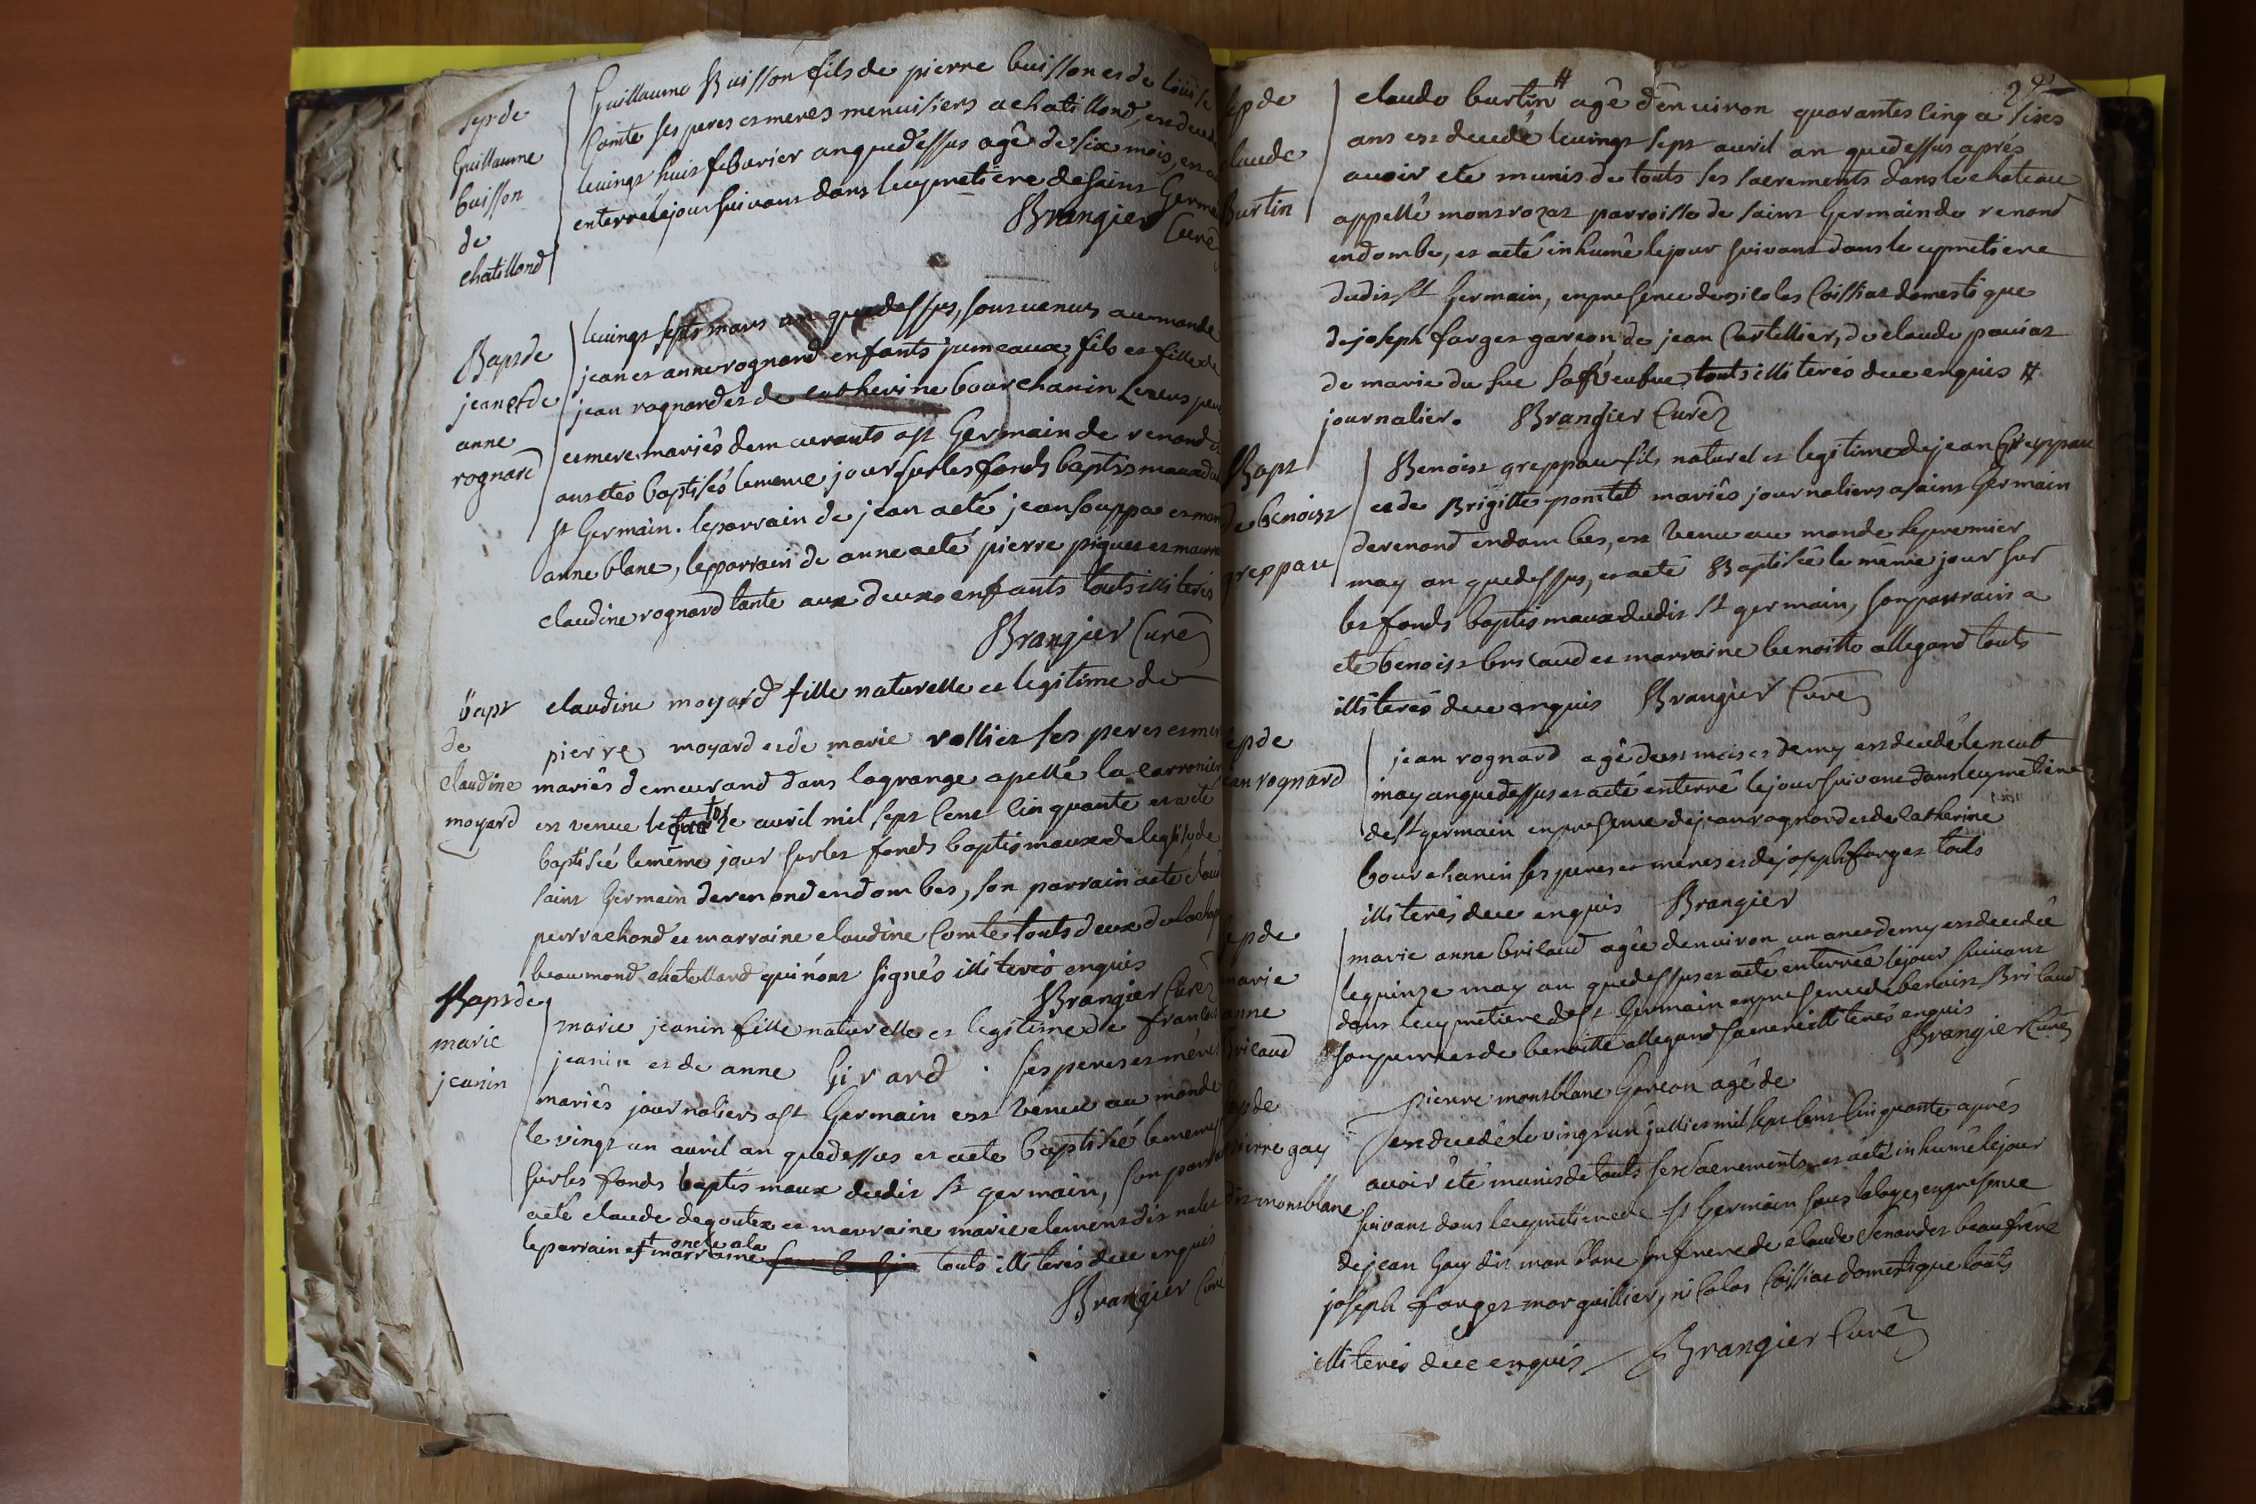 Sept de
Guillaume
buisson
de
chatillond
Guillaume Buisson fils de pierre buisson et de louise
Comte ses peres et meres menuisiers a chatillond, est decedé
le vingt huit febvrier an que dessus agê de six mois, et a
enterré le jour suivant dans le cymetiere de saint Germain
Brangier Curé
Bapt de
jean et de
anne
rognard
le vingt sept mars an que dessus, sont venus au monde
jean et anne rognard enfants jumeaux fils et fille de
jean rognard et de catherine bourchanin leurs peres
et meres mariês demeurants a st Germain de renond
ont etés baptisés le meme jour sur les fonds baptismaux
st Germain. le parrain de jean a eté jean souppa et mar
anne blanc, le parrain de anne a eté pierre piquet et marr
claudine rognard tante aux deux enfants touts illiterés
Brangier Curé
bapt
de
claudine
moyard
claudine moyard fille naturelle et legitime de
pierre moyard et de marie vollier ses peres et mer
mariês demeurand dans la grange apellé la carronier
est venue le quatorze avril mil sept cent cinquante et a eté
baptisée le même jour sur les fonds baptismaux de leglise de
saint Germain de renond en dombes, son parrain a eté
perrachond et marraine claudine Comte touts deux de la
beaumond chatellard qui n'ont signés illiterés enquis
Brangier Curé
Bapt de
marie
jeanin
marie jeanin fille naturelle et legitime de francois
jeanin et de anne Girard ses peres et méres
mariês journaliers a st Germain est venue au monde
le vingt un avril an que dessus et a eté baptisée le meme
sur les fonds baptismaux dudit st germain, son parrain
a eté claude degoutex et marraine marie clement
le parrain est oncle a la marraine touts illiterés de ce enquis
Brangier Curé
29
sep de
claude
Burtin
claude burtin # agê d'environ quarantes cinq a sixes
ans est decedé le vingt sept avril an que dessus aprés
avoir eté munis de touts ses sacrements dans le chateau
appellé montrozat parroisse de saint Germain de renond
en dombe, et a eté inhumê le jour suivant dans le cymetiere
dudit st Germain, en presence de nicolas Coissiat domestique
de joseph farges garcon de jean Cartellier, de claude paviot
de marie du suc sa veufve touts illiterés de ce enquis #
journalier. Brangier Curé
Bapt
de benoist
greppau
Benoist greppau fils naturel et legitime de jean Greppau
et de Brigitte pontet mariês journaliers a saint Germain
de renond en dombes, est venu au monde le premier
may an que dessus, et a eté Baptisée le même jour sur
les fonds baptismaux dudit st germain, son parrain a
eté benoist bricaud et marraine benoitte allegard touts
illiterés de ce enquis Brangier Curé
sep de
jean rognard
jean rognard agê d'un mois et demy est decedé le neuf
may an que dessus et a eté enterré le jour suivant dans le cymetiere
de st germain en presence de jean rognard et de catherine
bourchanin ses peres et mères et de joseph farges touts
illiterés de ce enquis Brangier
sep de
marie
anne
bricaud
marie anne bricaud agée d'environ un an et demy est decedée
le quinze may an que dessus et a eté enterrée le jour suivant
dans le cymetiere de st Germain en presence de benoist Bricaud
son pere et de benoitte allegard sa mere illiterés enquis
Brangier Curé
sep de
pierre gay
dit montblanc
pierre montblanc Garcon agê de
est decedê le vingt un juilliet mil sept cent cinquante aprés
avoir été munis de touts ses sacrements, et a eté inhumê le jour
suivant dans le cymetiere de st Germain sous la loge, en presence
de jean Gay dit mon blanc son frere de claude senandet beau frére
joseph farges marguillier, nicolas Coissiat domestique touts
illiterés de ce enquis Brangier Curé